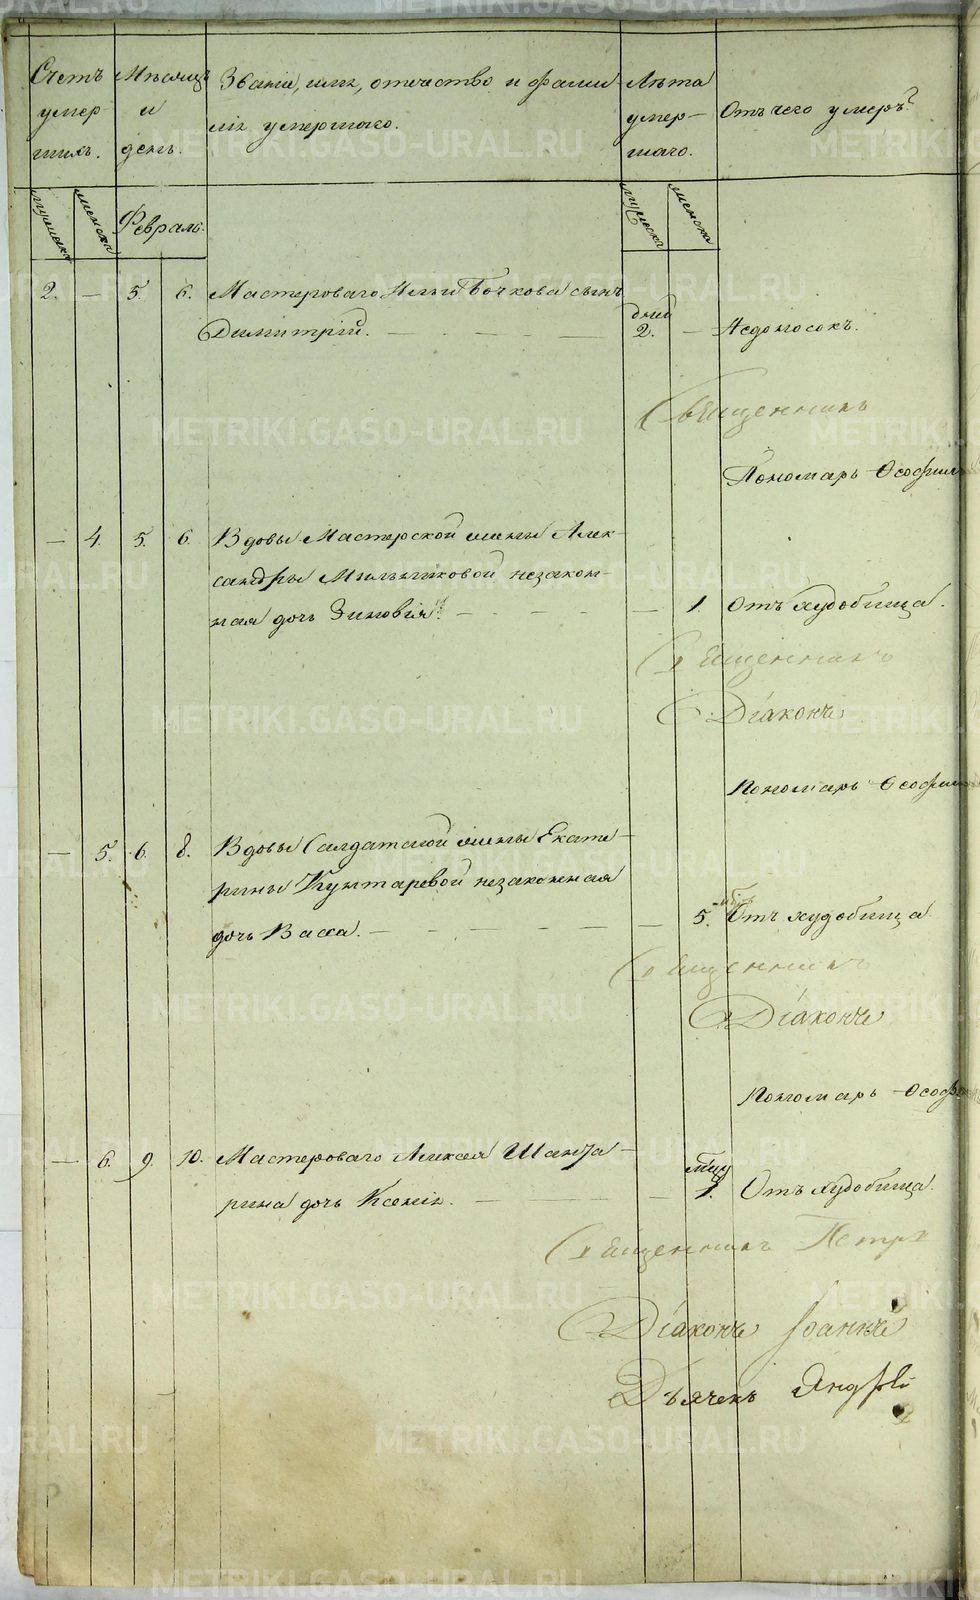 Счетъ умер-шихъ.
Мѣсяцъ и день.
Званіе, имя, отчество и фами
лія умершаго.
Лѣта умер-шаго.
Отъ чего умеръ?
мужеска
женска
Февраль.
мужеска
женска
2. — 5. 6. Мастероваго Ильи Бочкова сынъ
Димитрій. — — — — дней 2. — Недоносокъ.
Священникъ
Пономарь Ѳеофил
— 4. 5. 6. Вдовы Мастерской жены Алек-
сандры Мыльниковой незакон-
ная дочь Зиновія. — — — — — 1. Отъ худобища.
Священникъ
Діаконъ
Пономарь Ѳеофил
— 5. 6. 8. Вдовы Салдатской жены Екате-
рины незаконная
дочь Васса. — — — — — 5. Отъ худобища.
Священникъ
Діаконъ
Пономарь Ѳеоф
— 6. 9. 10. Мастероваго Алексея Шанга-
рина дочь Ксенія. — — — — мѣц 1. Отъ худобища.
Священникъ Петръ
Діаконъ Іоаннъ
Дьячекъ Андрей
METRIKI.GASO-URAL.RU